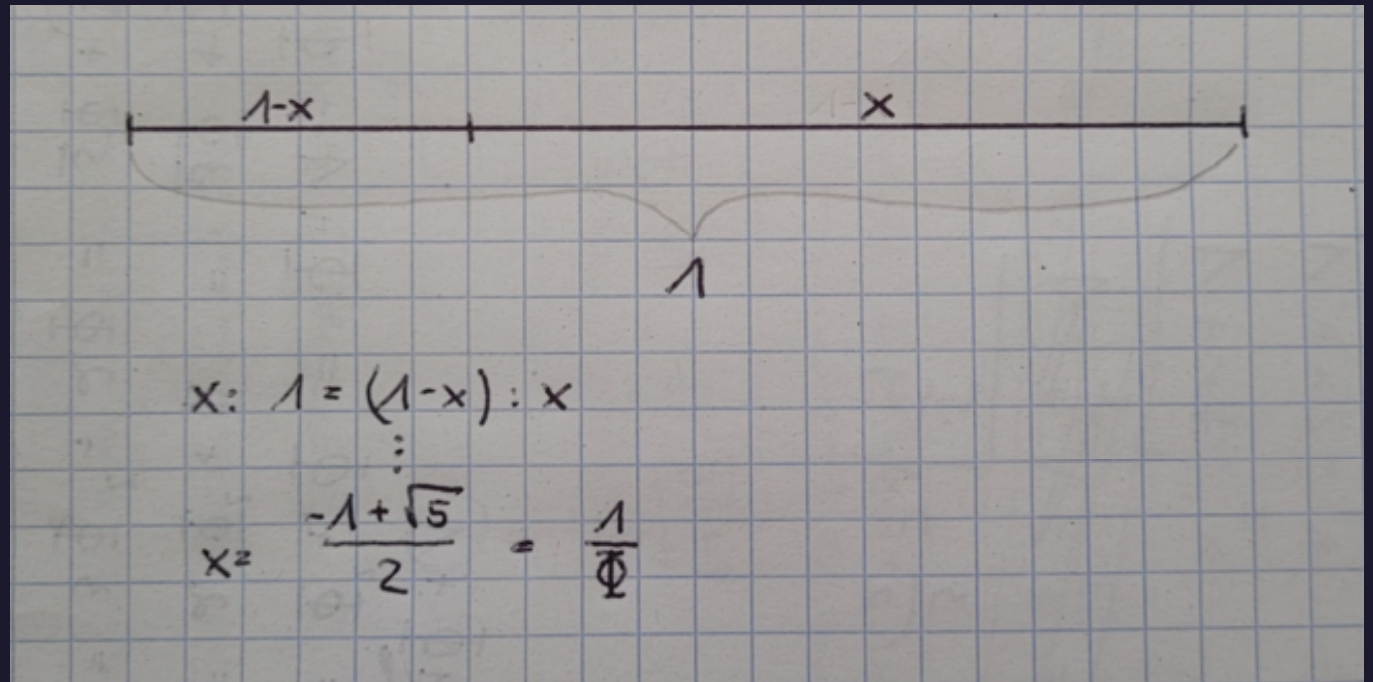 1-x x
1
x: 1 = (1-x) : x
⋮
x = (-1+√5)/2 = 1/Φ